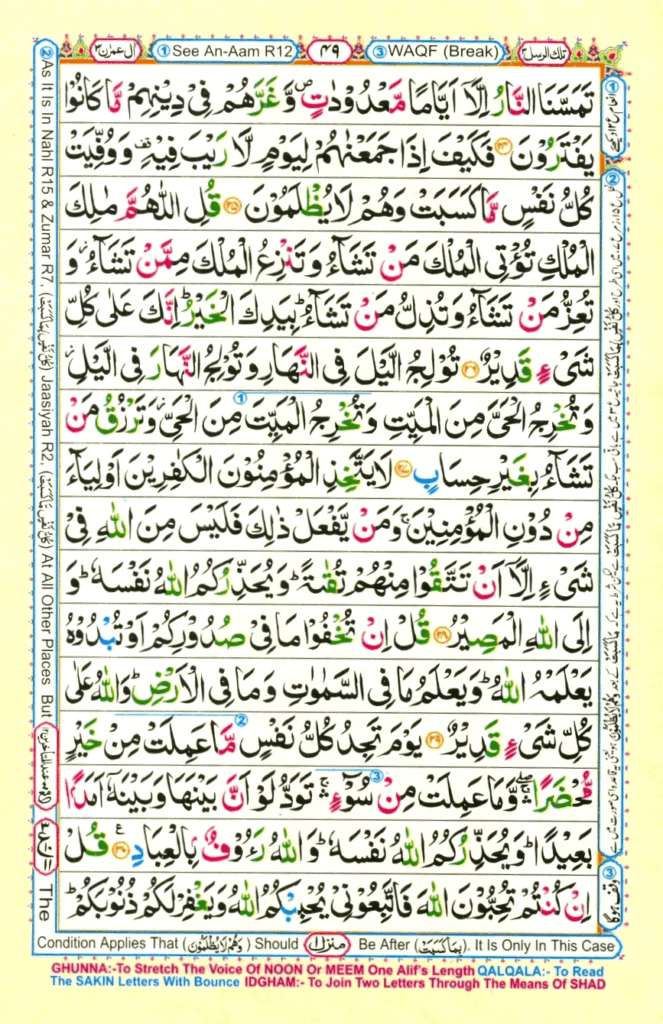 اٰل عمرٰن ٣
① See An-Aam R12
٤٩
③ WAQF (Break)
تلك الرسل ٣
تَمَسَّنَا النَّارُ اِلَّاۤ اَيَّامًا مَّعْدُوْدٰتٍ ۪ وَّ غَرَّهُمْ فِىْ دِيْنِهِمْ مَّا كَانُوْا
يَفْتَرُوْنَ ﴿۲۴﴾ فَكَيْفَ اِذَا جَمَعْنٰهُمْ لِيَوْمٍ لَّا رَيْبَ فِيْهِ ۟ وَوُفِّيَتْ
كُلُّ نَفْسٍ مَّا كَسَبَتْ وَهُمْ لَا يُظْلَمُوْنَ ﴿۲۵﴾ قُلِ اللّٰهُمَّ مٰلِكَ
الْمُلْكِ تُؤْتِى الْمُلْكَ مَنْ تَشَآءُ وَتَنْزِعُ الْمُلْكَ مِمَّنْ تَشَآءُ ۫ وَ
تُعِزُّ مَنْ تَشَآءُ وَتُذِلُّ مَنْ تَشَآءُ ؕ بِيَدِكَ الْخَيْرُ ؕ اِنَّكَ عَلٰى كُلِّ
شَىْءٍ قَدِيْرٌ ﴿۲۶﴾ تُوْلِجُ الَّيْلَ فِى النَّهَارِ وَتُوْلِجُ النَّهَارَ فِى الَّيْلِ
وَتُخْرِجُ الْحَىَّ مِنَ الْمَيِّتِ وَتُخْرِجُ الْمَيِّتَ مِنَ الْحَىِّ ۫ وَتَرْزُقُ مَنْ
تَشَآءُ بِغَيْرِ حِسَابٍ ﴿۲۷﴾ لَا يَتَّخِذِ الْمُؤْمِنُوْنَ الْكٰفِرِيْنَ اَوْلِيَآءَ
مِنْ دُوْنِ الْمُؤْمِنِيْنَ ۚ وَمَنْ يَّفْعَلْ ذٰلِكَ فَلَيْسَ مِنَ اللّٰهِ فِىْ
شَىْءٍ اِلَّاۤ اَنْ تَتَّقُوْا مِنْهُمْ تُقٰىةً ؕ وَيُحَذِّرُكُمُ اللّٰهُ نَفْسَهٗ ؕ وَ
اِلَى اللّٰهِ الْمَصِيْرُ ﴿۲۸﴾ قُلْ اِنْ تُخْفُوْا مَا فِىْ صُدُوْرِكُمْ اَوْ تُبْدُوْهُ
يَعْلَمْهُ اللّٰهُ ؕ وَيَعْلَمُ مَا فِى السَّمٰوٰتِ وَمَا فِى الْاَرْضِ ؕ وَاللّٰهُ عَلٰى
كُلِّ شَىْءٍ قَدِيْرٌ ﴿۲۹﴾ يَوْمَ تَجِدُ كُلُّ نَفْسٍ مَّا عَمِلَتْ مِنْ خَيْرٍ
مُّحْضَرًا ۖۛۚ وَّمَا عَمِلَتْ مِنْ سُوْٓءٍ ۛۚ تَوَدُّ لَوْ اَنَّ بَيْنَهَا وَبَيْنَهٗۤ اَمَدًۢا
بَعِيْدًا ؕ وَيُحَذِّرُكُمُ اللّٰهُ نَفْسَهٗ ؕ وَاللّٰهُ رَءُوْفٌۢ بِالْعِبَادِ ﴿۳۰﴾ قُلْ
اِنْ كُنْتُمْ تُحِبُّوْنَ اللّٰهَ فَاتَّبِعُوْنِىْ يُحْبِبْكُمُ اللّٰهُ وَيَغْفِرْ لَكُمْ ذُنُوْبَكُمْ ؕ
② As It Is In Nahl R15 & Zumar R7, (كُلُّ نَفْسٍ بِمَا كَسَبَتْ) Jaasiyah R2, (كُلُّ نَفْسٍ مَّا كَسَبَتْ) At All Other Places But The
Condition Applies That (وَهُمْ لَا يُظْلَمُوْنَ) Should منزل ١ Be After (بِمَا كَسَبَتْ). It Is Only In This Case
GHUNNA:-To Stretch The Voice Of NOON Or MEEM One Alif's Length QALQALA:- To Read
The SAKIN Letters With Bounce IDGHAM:- To Join Two Letters Through The Means Of SHAD